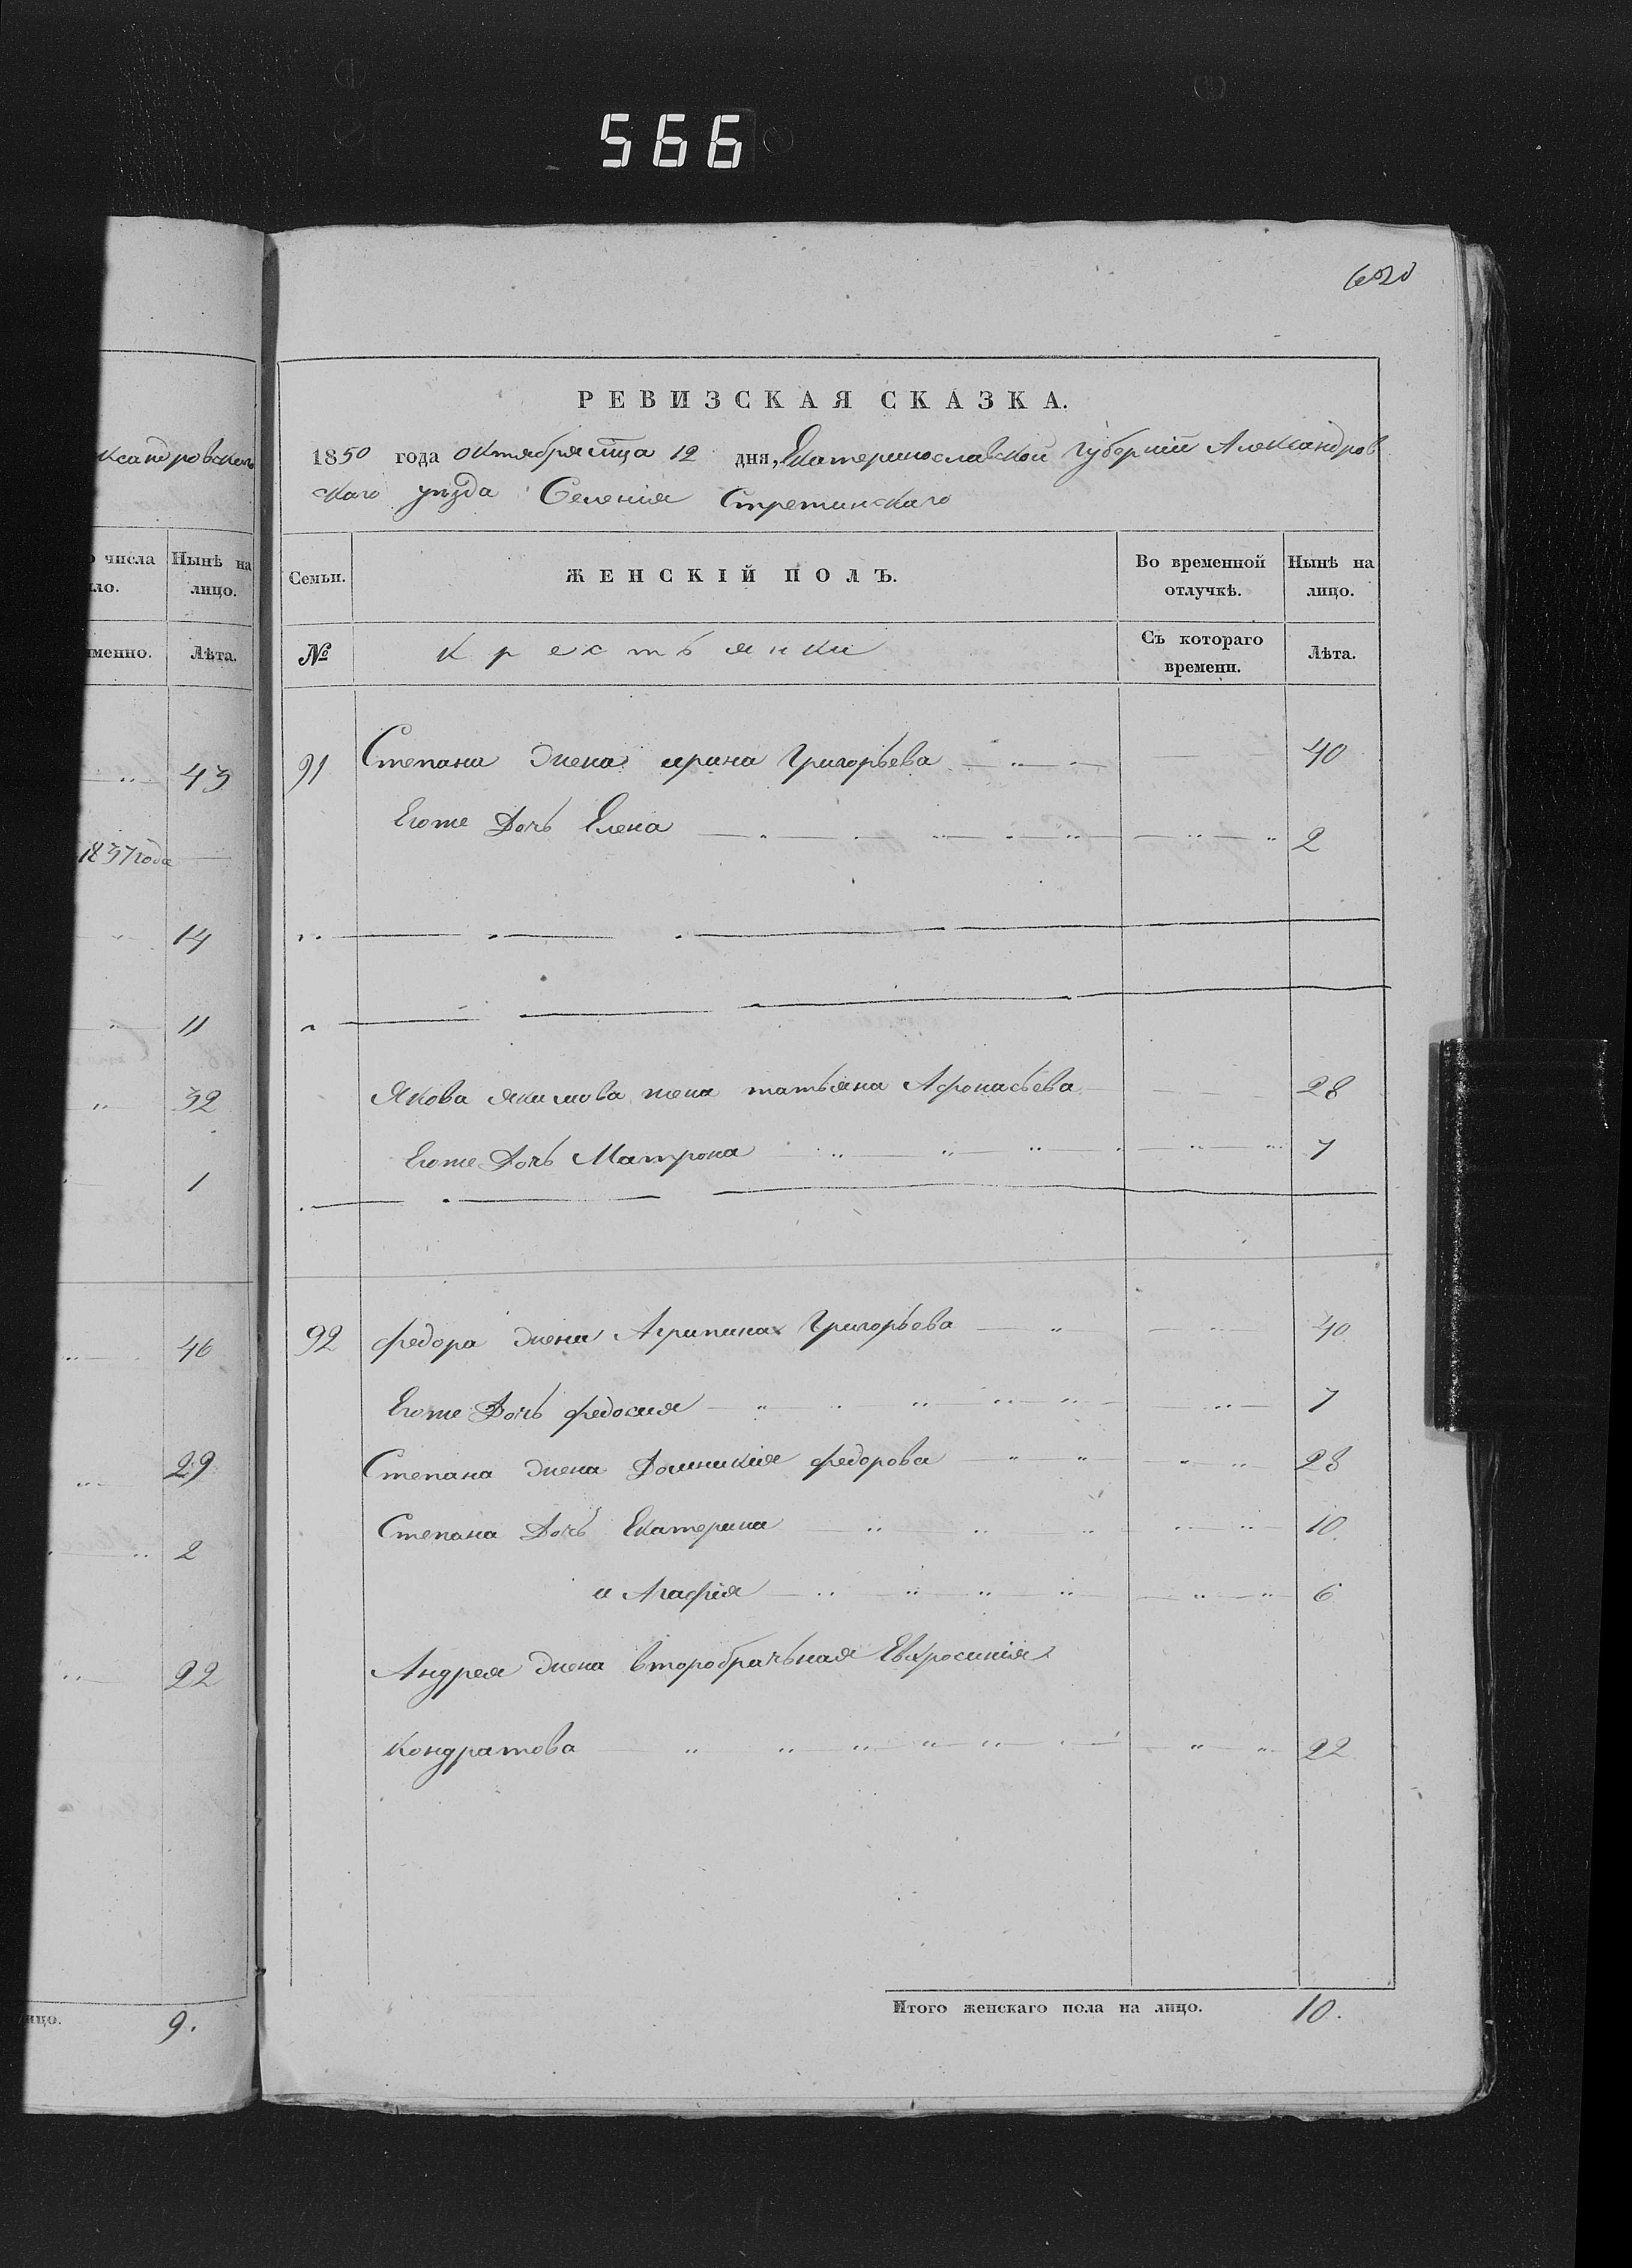 566
РЕВИЗСКАЯ СКАЗКА.
1850 года октября мца 12 дня, Екатеринославской губернии Александров
скаго уѣзда Селенія Стретинскаго
Семьи. ЖЕНСКІЙ ПОЛЪ. Во временной отлучкѣ. Нынѣ на лицо.
№ Крестьянки Съ котораго времени. Лѣта.
91 Степана жена ирина Григорьева 40
Егоже Дочь Елена 2
Якова якимова жена татьяна Афонасьева 28
Егоже Дочь Матрона 7
92 федора жена Агрипина Григорьева 40
Егоже Дочь федосия 7
Степана жена Домникія федорова 28
Степана Дочь Екатерина 10
и Агафія 6
Андрея жена второбрачьная Евфросинія
Кондратова 22
Итого женскаго пола на лицо. 10.
ксандровскаго
числа Нынѣ на
ло. лицо.
именно. Лѣта.
43
1837 года
14
11
32
1
46
29
2
22
лицо. 9.